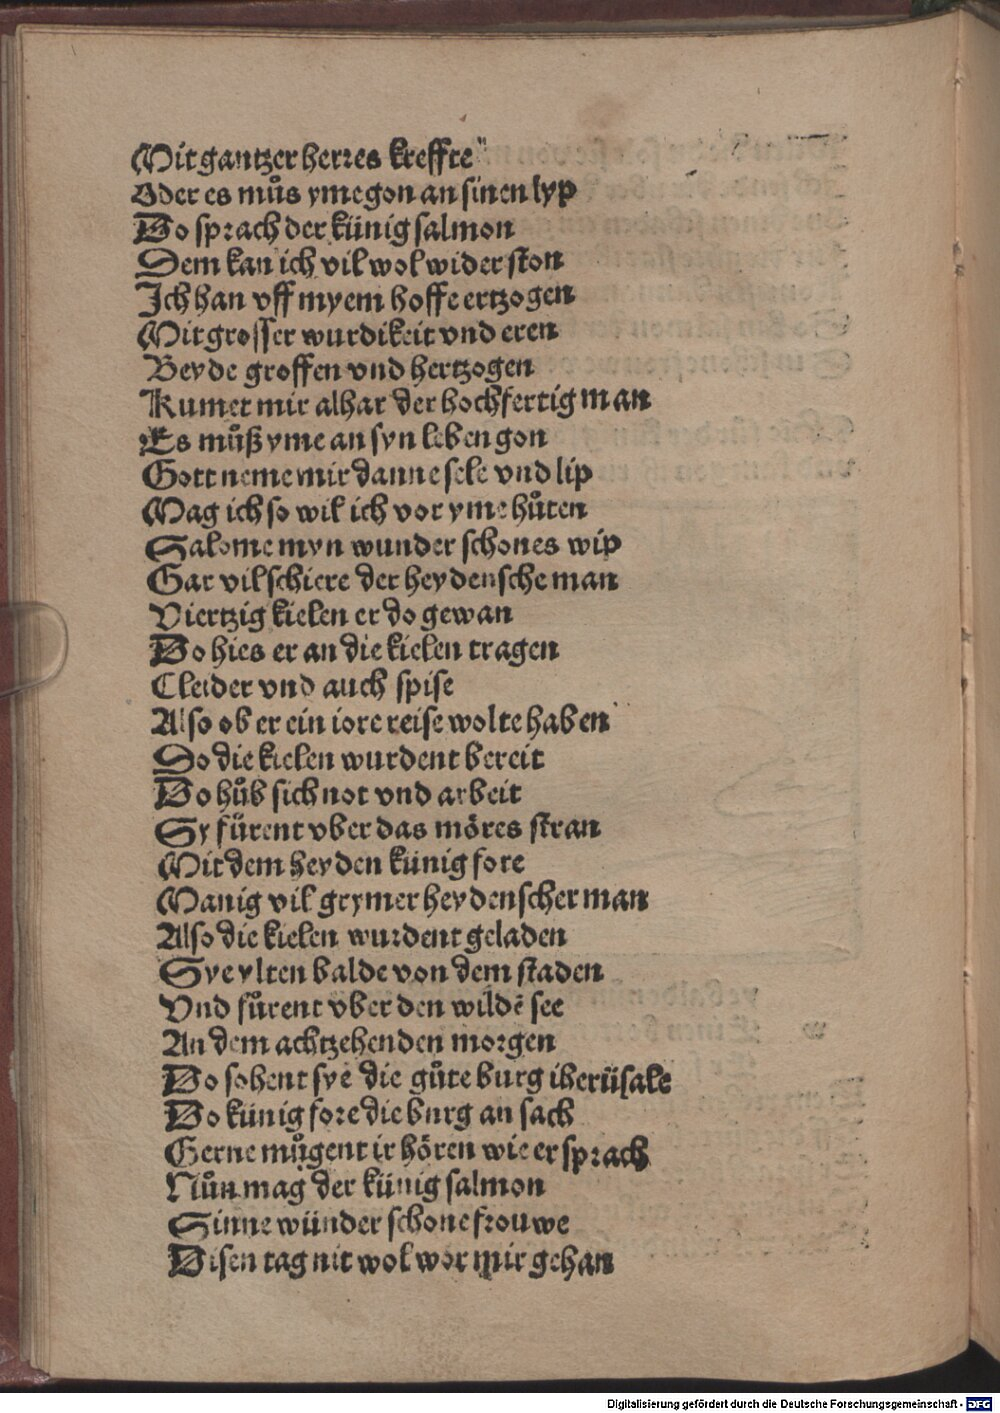 Mit gantzer herres kreffte
Oder es můs yme gon an sinen lyp
Do sprach der künig salmon
Dem kan ich vil wol wider ston
Ich han vff myem hoffe ertzogen
Mit grosser wurdikeit vnd eren
Beyde groffen vnd hertzogen
Kumet mir alhar der hochfertig man
Es můß yme an syn leben gon
Gott neme mir danne sele vnd lip
Mag ich so wil ich vor yme hůten
Salome myn wunder schones wip
Gar vil schiere der heydensche man
Viertzig kielen er do gewan
Do hies er an die kielen tragen
Cleider vnd auch spise
Also ob er ein iore reise wolte haben
So die kielen wurdent bereit
Do hůb sich not vnd arbeit
Sy fůrent vber das möres stran
Mit dem heyden künig fore
Manig vil grymer heydenscher man
Also die kielen wurdent geladen
Sye ylten balde von dem staden
Vnd fůrent vber den wildē see
An dem achtzehenden morgen
Do sohent sye die gůte burg iherüsale
Do künig fore die burg an sach
Gerne můgent ir hören wie er sprach
Nůn mag der künig salmon
Sinne wünder schone frouwe
Disen tag nit wol vor mir gehan
Digitalisierung gefördert durch die Deutsche Forschungsgemeinschaft - DFG